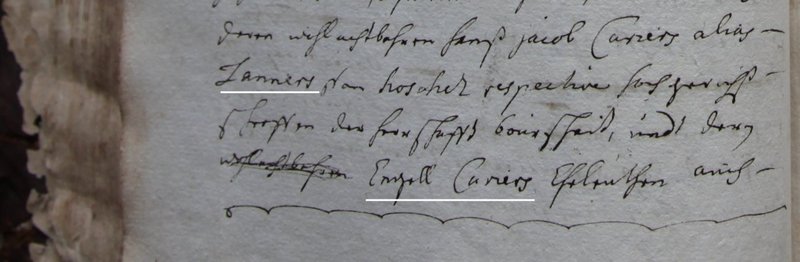 deren wohlachtbahren hanß jacob Cariers alias
Tanners von hoschet respective hochgerichts
scheffen der herrschafft bourscheit, undt deren
wohlachtbahren Engell Cariers Eheleuthen auch